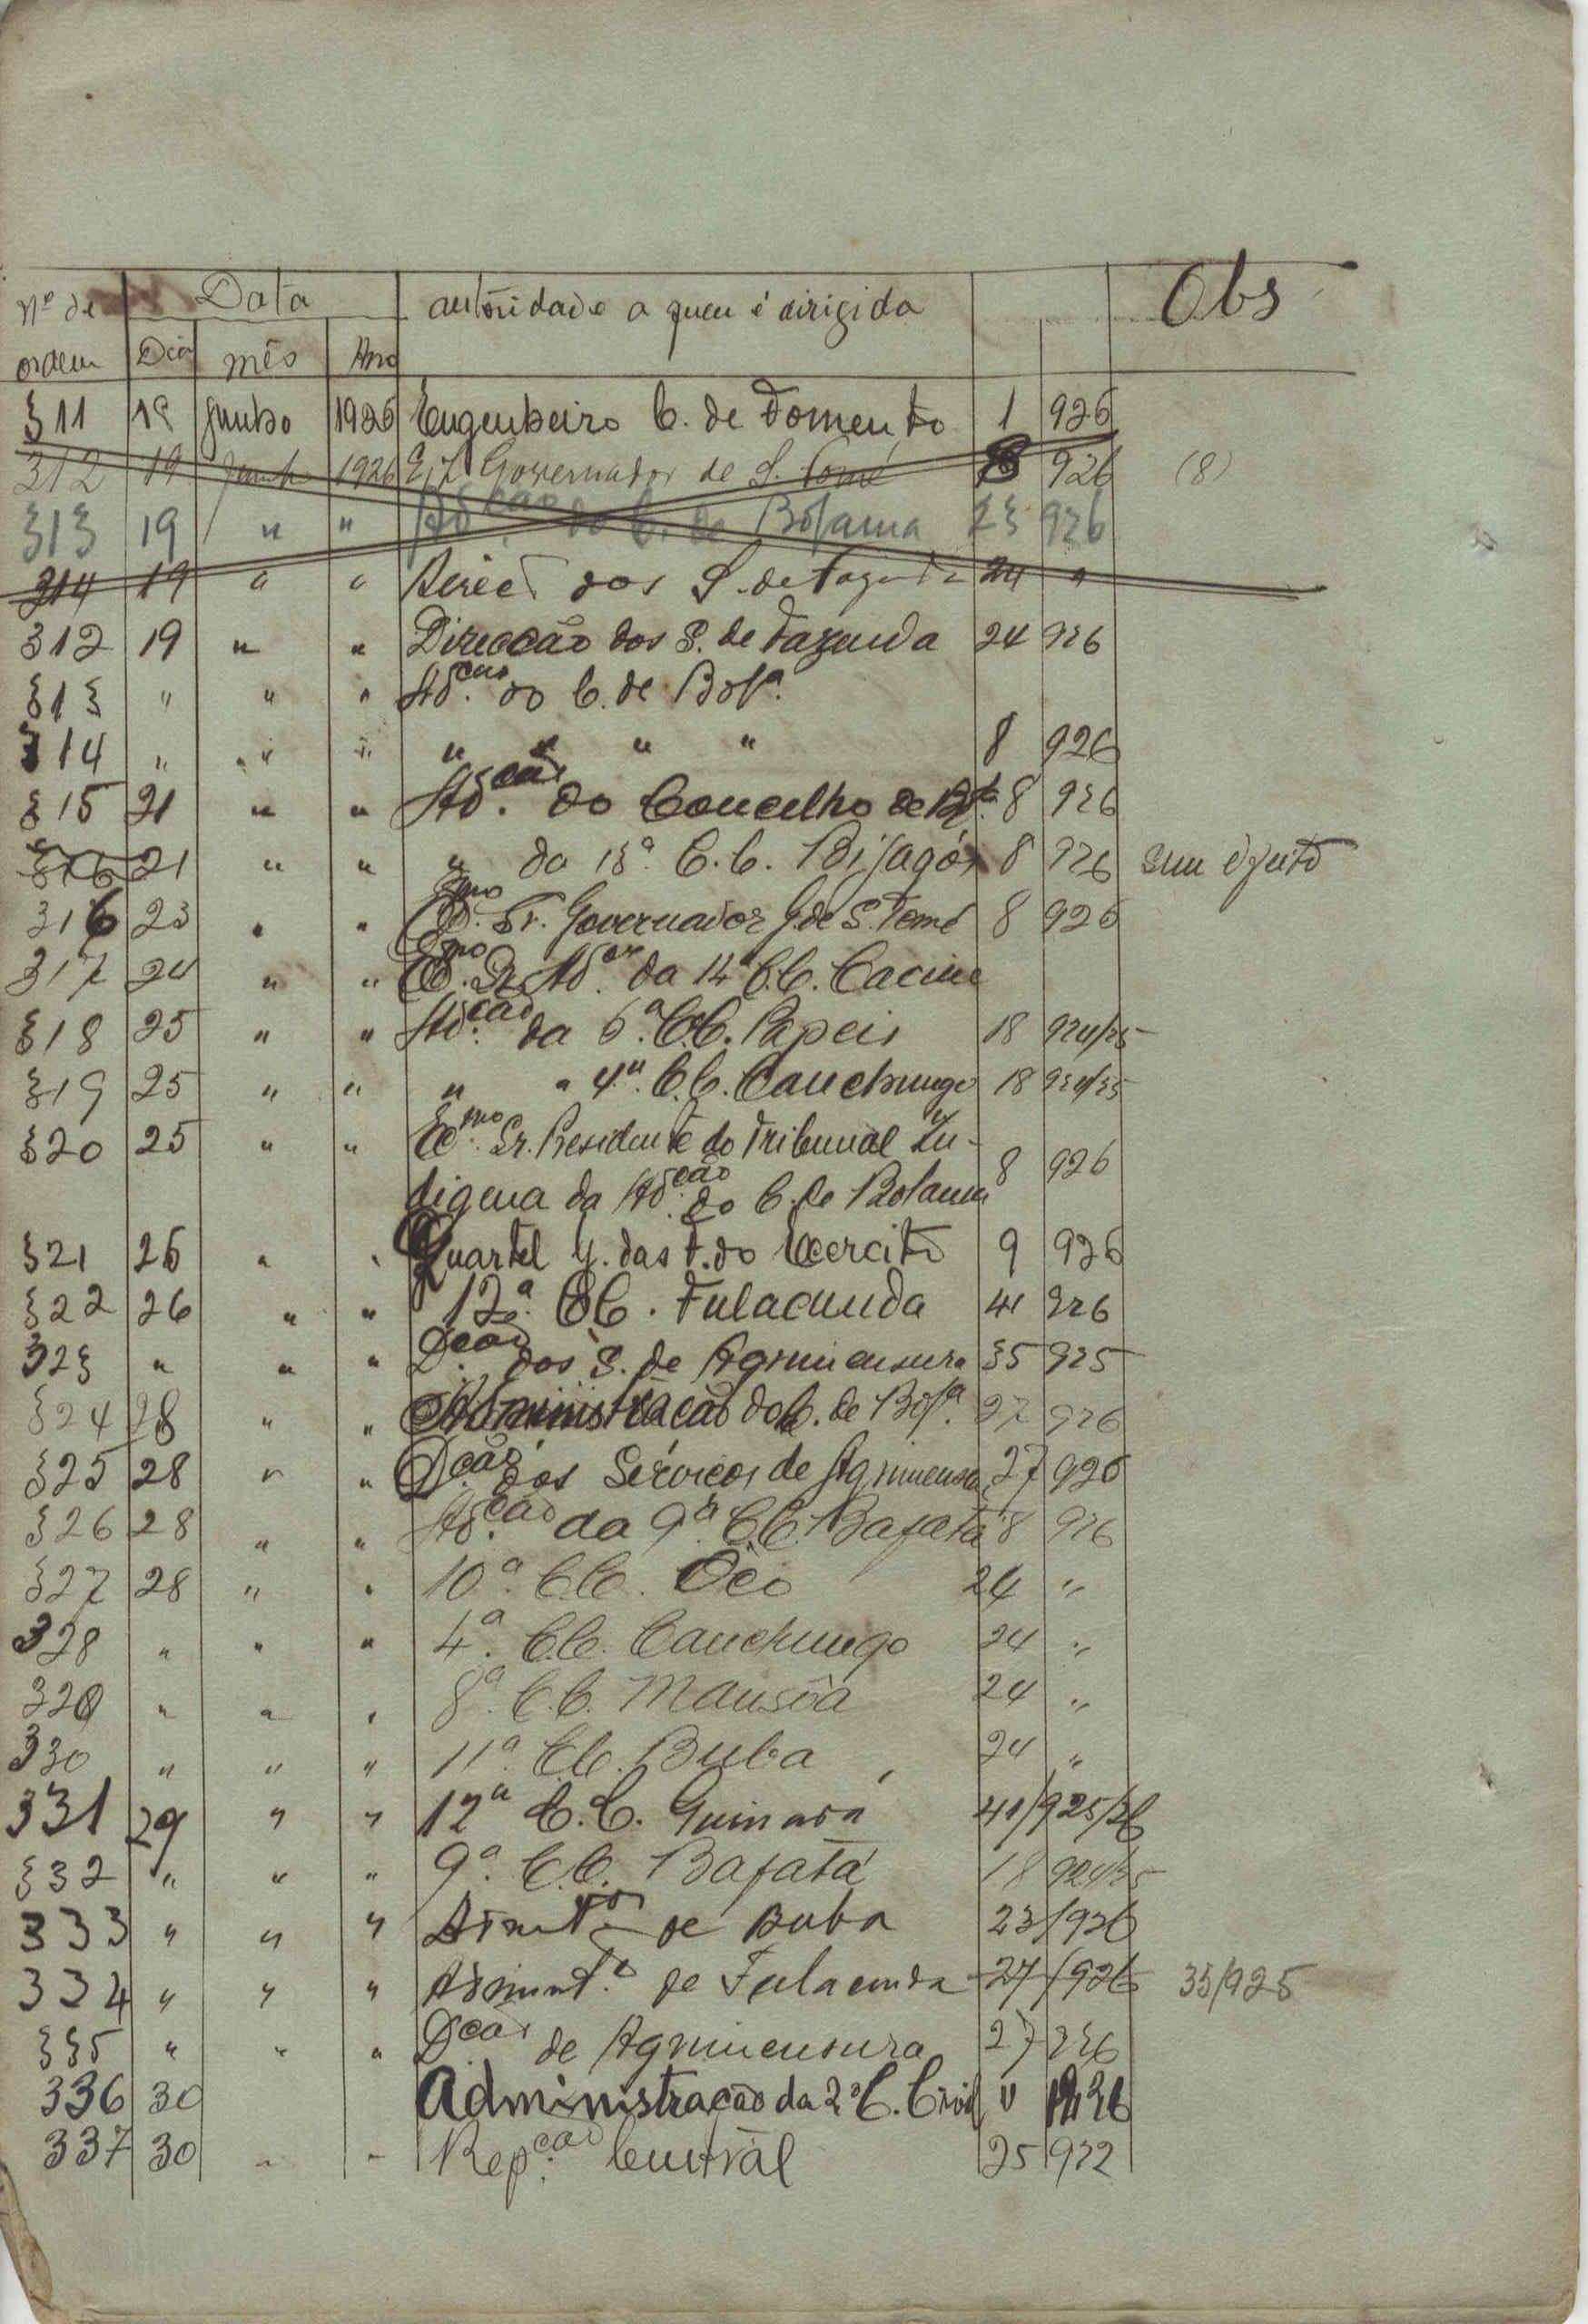 Nº de Data autoridade a quem é dirigida Obs
ordem Dia mês Ano
311 19 Junho 1926 Engenheiro C. de Fomento 1 926
312 19 Junho 1926 Governador de S. Tomé 8 926 (8)
313 19 " " Adção do C. de Bolama 23 926
314 19 " " dos S. de Fazenda 24 "
312 19 " " Direcção dos S. de Fazenda 24 926
313 " " " Adção do C. de Bolª.
314 " " " " " " " 8 926
315 21 " " Adção do Concelho de 8 926
316 21 " " " da 13ª C.C. Bijagós 8 926 sem efeito
316 23 " " Exmo. Sr. Governador G. de S. Tomé 8 926
317 24 " " Exmo. Sr. Ador. da 14ª C.C. Cacine
318 25 " " Adção da 6ª C.C. Papeis 18 924/25
319 25 " " " " 4ª. C.C. Canchungo 18 924/25
320 25 " " Exmo. Sr. Presidente do Tribunal In-
digena da Adção do C. de Bolama 8 926
321 26 " " Quartel G. das F. do Exercito 9 926
322 26 " " 12ª. C.C. Fulacunda 41 926
323 " " " Dção dos S. de Agrimensura 35 925
324 28 " " Administracão do C. de Bolª. 27 926
325 28 " " Dção dos Serviços de Agrimensura 27 926
326 28 " " Adção da 9ª C.C. Bafatá 8 926
327 28 " " 10ª. C.C. Oio 24 "
328 " " " 4ª. C.C. Canchungo 24 "
329 " " " 8ª. C.C. Mansôa 24 "
330 " " " 11ª. C.C. Buba 24 "
331 29 " " 12ª C.C. Quinara 41/925/26
332 " " " 9ª. C.C. Bafatá 18 924/25
333 " " " de Buba 23/926
334 " " " de Fulacunda 27/926 35/925
335 " " " Dção de Agrimensura 27 926
336 30 Administracão da 2ª C. Civil
337 30 " " Repção Central 25 922